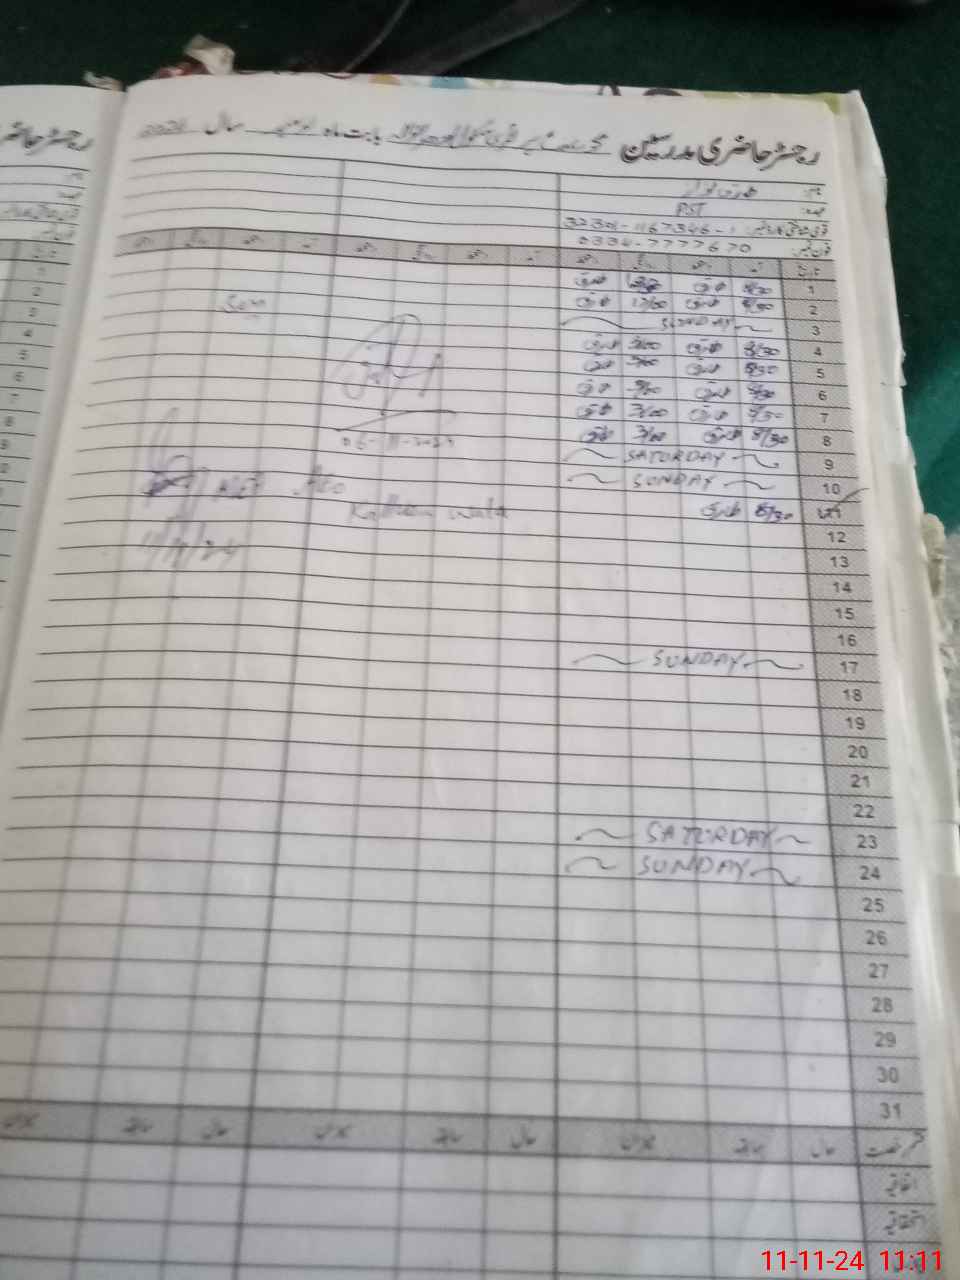 رجسٹر حاضری مدرسین بابت ماہ نومبر سال 2024
نام
طارق نواز
عہدہ
PST
قومی شناختی کارڈ نمبر 32304-1167346-1
فون نمبر 0334-7777670
تاریخ آمد دستخط روانگی دستخط
1 8/30 طارق طارق
2 8/30 طارق 12/00 طارق
3 SUNDAY
4 8/30 طارق 3/00 طارق
5 8/30 طارق 3/00 طارق
6 8/30 طارق 3/00 طارق
7 8/30 طارق 3/00 طارق
8 8/30 طارق 3/00 طارق
9 SATURDAY
10 SUNDAY
11 8/30 طارق
06-11-2024
AEO
11/11/24
12
13
14
15
16
17 SUNDAY
18
19
20
21
22
23 SATURDAY
24 SUNDAY
25
26
27
28
29
30
31
قسم رخصت حال سابقہ میزان حال سابقہ میزان حال سابقہ میزان
اتفاقیہ
استحقاقیہ
رجسٹر حاضری
1
2
3
4
5
6
7
8
9
11-11-24 11:11